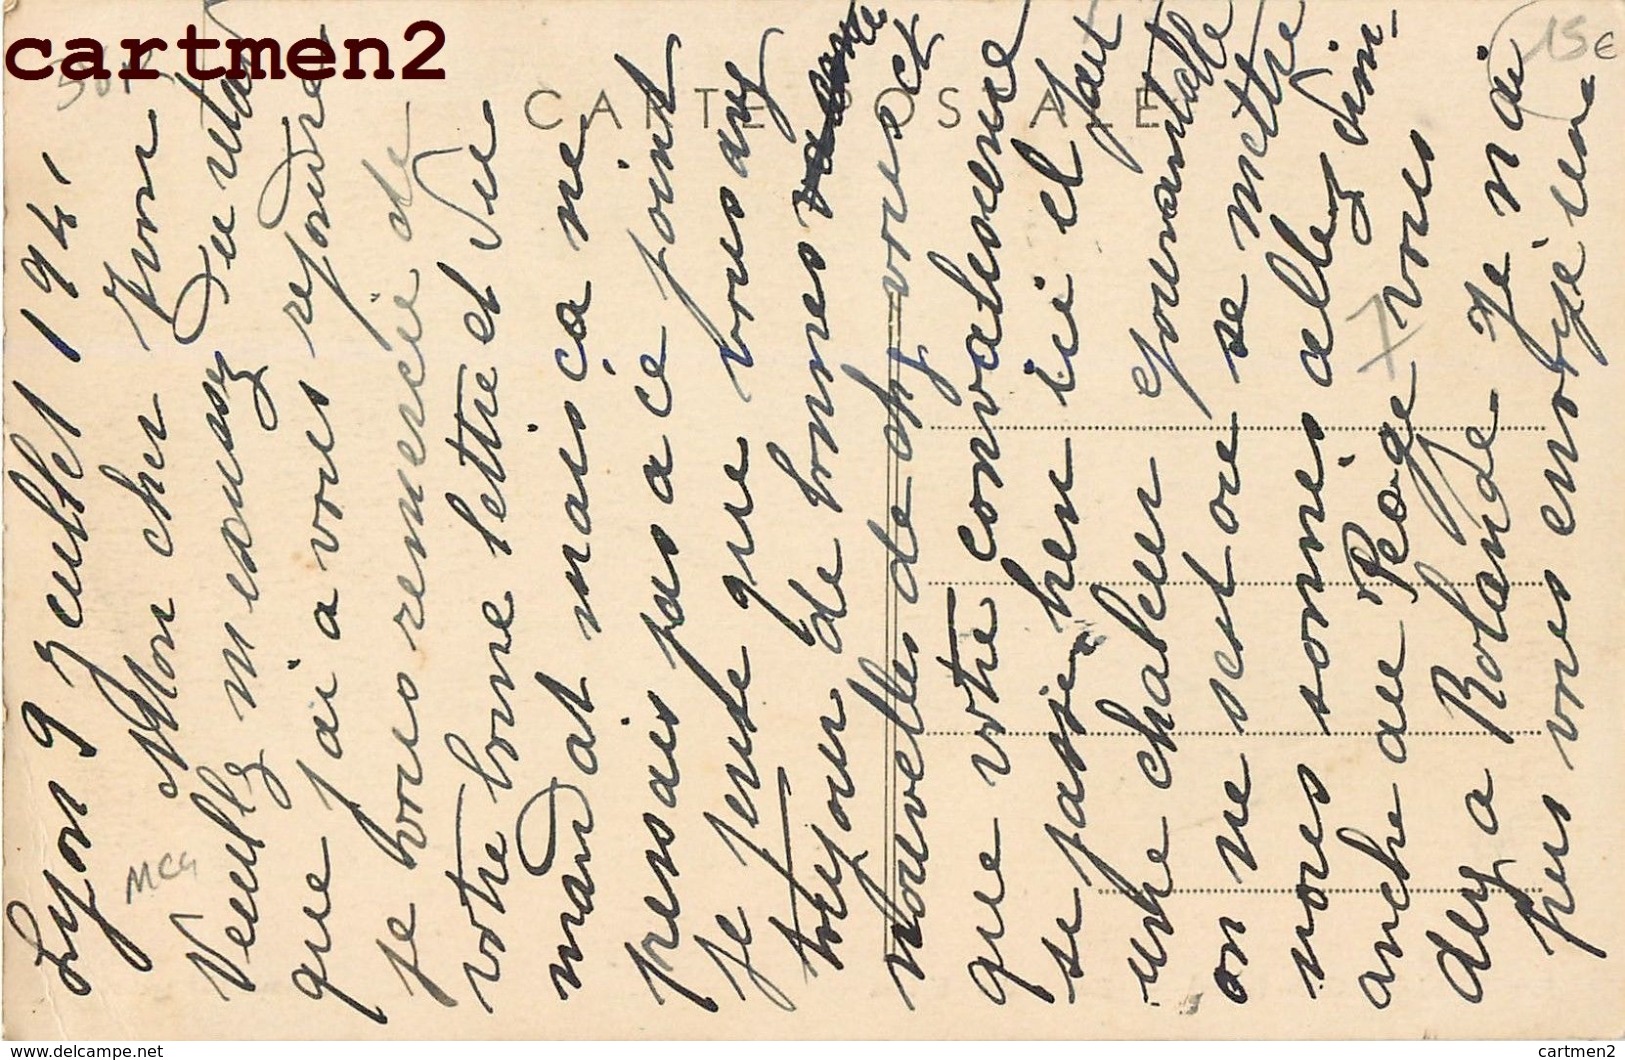 cartmen2
CARTE POSTALE
15€
MCG
Lyon 9 Zeullet 194
Mon cher Yvon
Veullez mexcusez du retard
que j'ai a vous repondre
je vous remercie de
votre bonne lettre et du
mandat mais ça ne
pressais pas a ce point
je pense que vous avez
toujour de bonnes
nouvelles de chez vous et
que votre convalesence
se passe bien ici il fait
une chaleur epouvantable
on ne set ou se mettre
nous sommes allez dim-
anche au Péage vous
dez a Rolande Je n'ai
pus vous envoyé un
www.delcampe.net
cartmen2